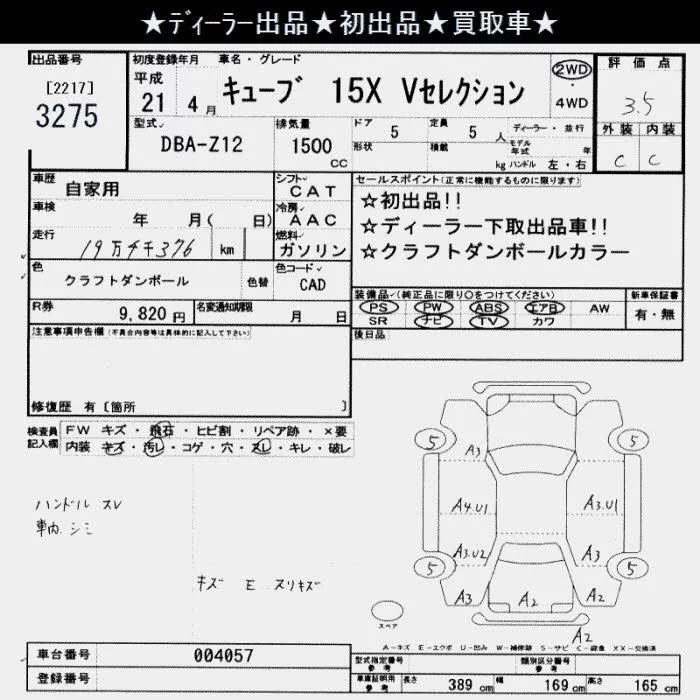 ★ディーラー出品★初出品★買取車★
出品番号
[2217]
3275
初度登録年月 車名・グレード
平成
21 4月 キューブ 15X Vセレクション
2WD
・
4WD
評価点
3.5
外装 内装
C C
型式
DBA-Z12
排気量
1500
CC
ドア 5 定員 5 人 ディーラー・並行
形状 積載 kg モデル年式 年
ハンドル 左・右
車歴 自家用
シフト CAT
車検 年 月( 日)
冷房 AAC
走行 19万4千376 km
燃料 ガソリン
色 クラフトダンボール 色替
色コード CAD
R券 9,820円 名変通知期限 月 日
セールスポイント(正常に機能するものに限ります)
☆初出品!!
☆ディーラー下取出品車!!
☆クラフトダンボールカラー
装備品(純正品に限り○をつけてください)
PS PW ABS エアB AW
SR ナビ TV カワ
新車保証書
有・無
後日品
注意事項申告欄(不具合内容等は具体的に記入して下さい)
修復歴 有〔箇所 〕
検査員
記入欄
FW キズ・飛石・ヒビ割・リペア跡・×要
内装 キズ・汚レ・コゲ・穴・スレ・キレ・破レ
ハンドル スレ
車内 シミ
キズ E ヌリキズ
5 5
A3
A4.U1 A3.U1
A3.U2 A3
5 5
A3 A2 A2
A2
スペア
A-キズ E-エクボ U-凹み W-補修跡 S-サビ C-腐食 XX-交換済
車台番号 004057
登録番号
型式指定番号 参考
類別区分番号 参考
車庫証明用 参考 長さ 389 cm 幅 169 cm 高さ 165 cm